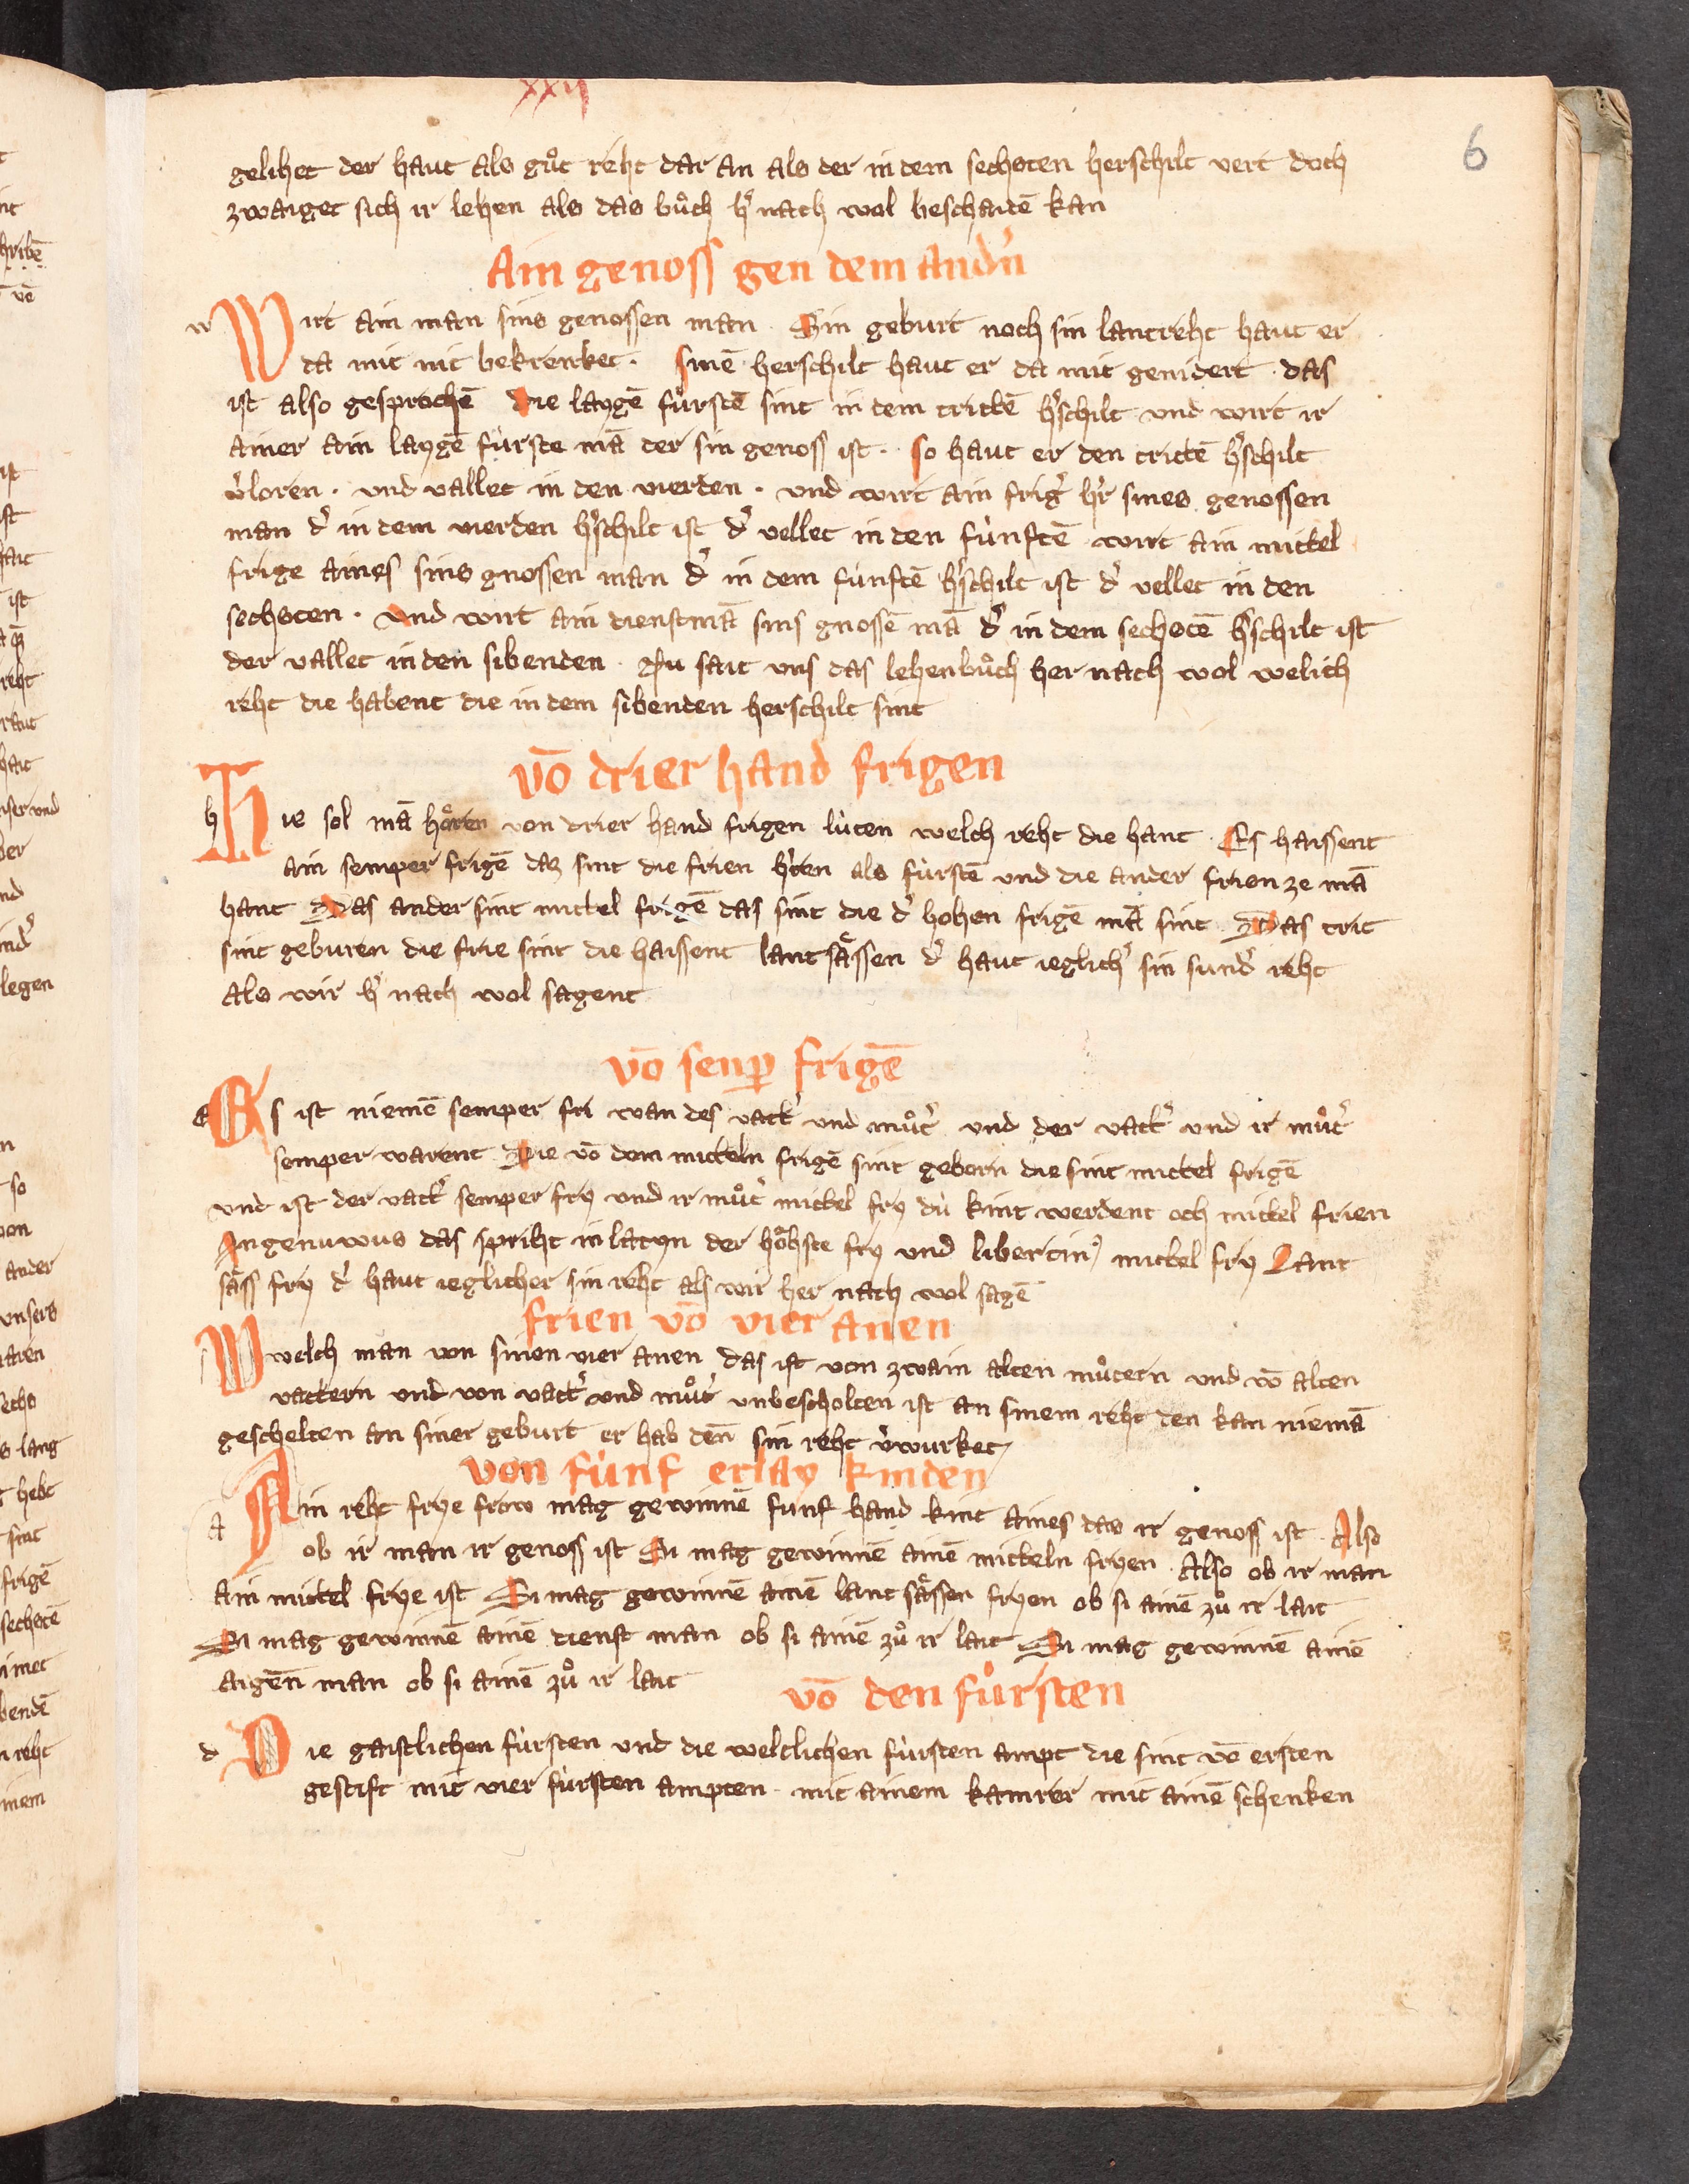 xxij
6
gelihet der haut als guͦt reht dar an als der in dem sechsten herschilt vert doch
zwaiget sich ir lehen als das buͦch h͛ nach wol beschaidē kan
Ain genoss gen dem and͛n
w Wirt ain man sins genossen man . Sin geburt noch sin lantreht haut er
da mit nit bekrenket . sinē herschilt haut er da mit genidert . das
ist also gesprochē Die laygē fuͤrstē sint in dem trittē h͛schilt und wirt ir
ainer ain laygē fúrste mā der sin genoss ist . so haut er den trittē h͛schilt
v͛loren . und vallet in den vierden . und wirt ain frig͛ h͛r sines genossen
man d͛ in dem vierden h͛schilt ist d͛ vellet in den fúnftē wirt ain mittel
frige aines sins gnossen man d͛ in dem fúnftē h͛schilt ist d͛ vellet in den
sechsten . Und wirt ain dienstmā sins gnossē mā d͛ in dem sechstē h͛schilt ist
der vallet in den sibenden . Nu sait uns das lehenbuͦch her nach wol welich
reht die habent die in dem sibenden herschilt sint
vō drier hand frigen
h Hie sol mā hoͤren von drier hand frigen lúten welch reht die hant . Es haissent
ain semper frigē daz sint die frien h͛ren als fúrstē und die ander frien ze mā
hant Das ander sint mittel frigē das sint die d͛ hohen frigē mā sint Das trit
sint geburen die frie sint die haissent lantsaͤssen d͛ haut ieglich͛ sin sund͛ reht
als wir h͛ nach wol sagent
vō semꝑ frigē
e Es ist niemē semper fri wan des vatt͛ und muͦt͛ und der vatt͛ und ir muͦt͛
semper warent Die vō dem mitteln frigē sint geborn die sint mittel frigē
und ist der vatt͛ semper fry und ir muͦt͛ mittel fry dú kint werdent och mittel frien
Ingenuwus das spriht in latyn der hoͤhste fry und libertinꝰ mittel fry Lant
saͤss fry d͛ haut ieglicher sin reht als wir her nach wol sagē
frien vō vier anen
Wwelch man von sinen vier anen das ist von zwain alten muͦtern und vō alten
vattern und von vatt͛ und muͦt͛ unbescholten ist an sinem reht den kan niemā
geschelten an siner geburt er hab deñ sin reht v͛wurket
von fúnf erlay kinden
a Ain reht frye frow mag gewinnē fúnf hand kint aines das ir genoss ist . Also
ob ir man ir genoss ist Si mag gewinnē ainē mitteln fryen . Also ob ir man
ain mittel frye ist Si mag gewinnē ainē lantsaͤssen fryen ob si ainē zuͦ ir lait
Si mag gewinnē ainē dienst man ob si ainē zuͦ ir lait Si mag gewinnē ainē
aigēn man ob si ainē zuͦ ir lait
vō den fuͤrsten
d Die gaistlichen fúrsten und die weltlichen fúrsten ampt die sint vō ersten
gestift mit vier fúrsten ampten . mit ainem kamrer mit ainē schenken